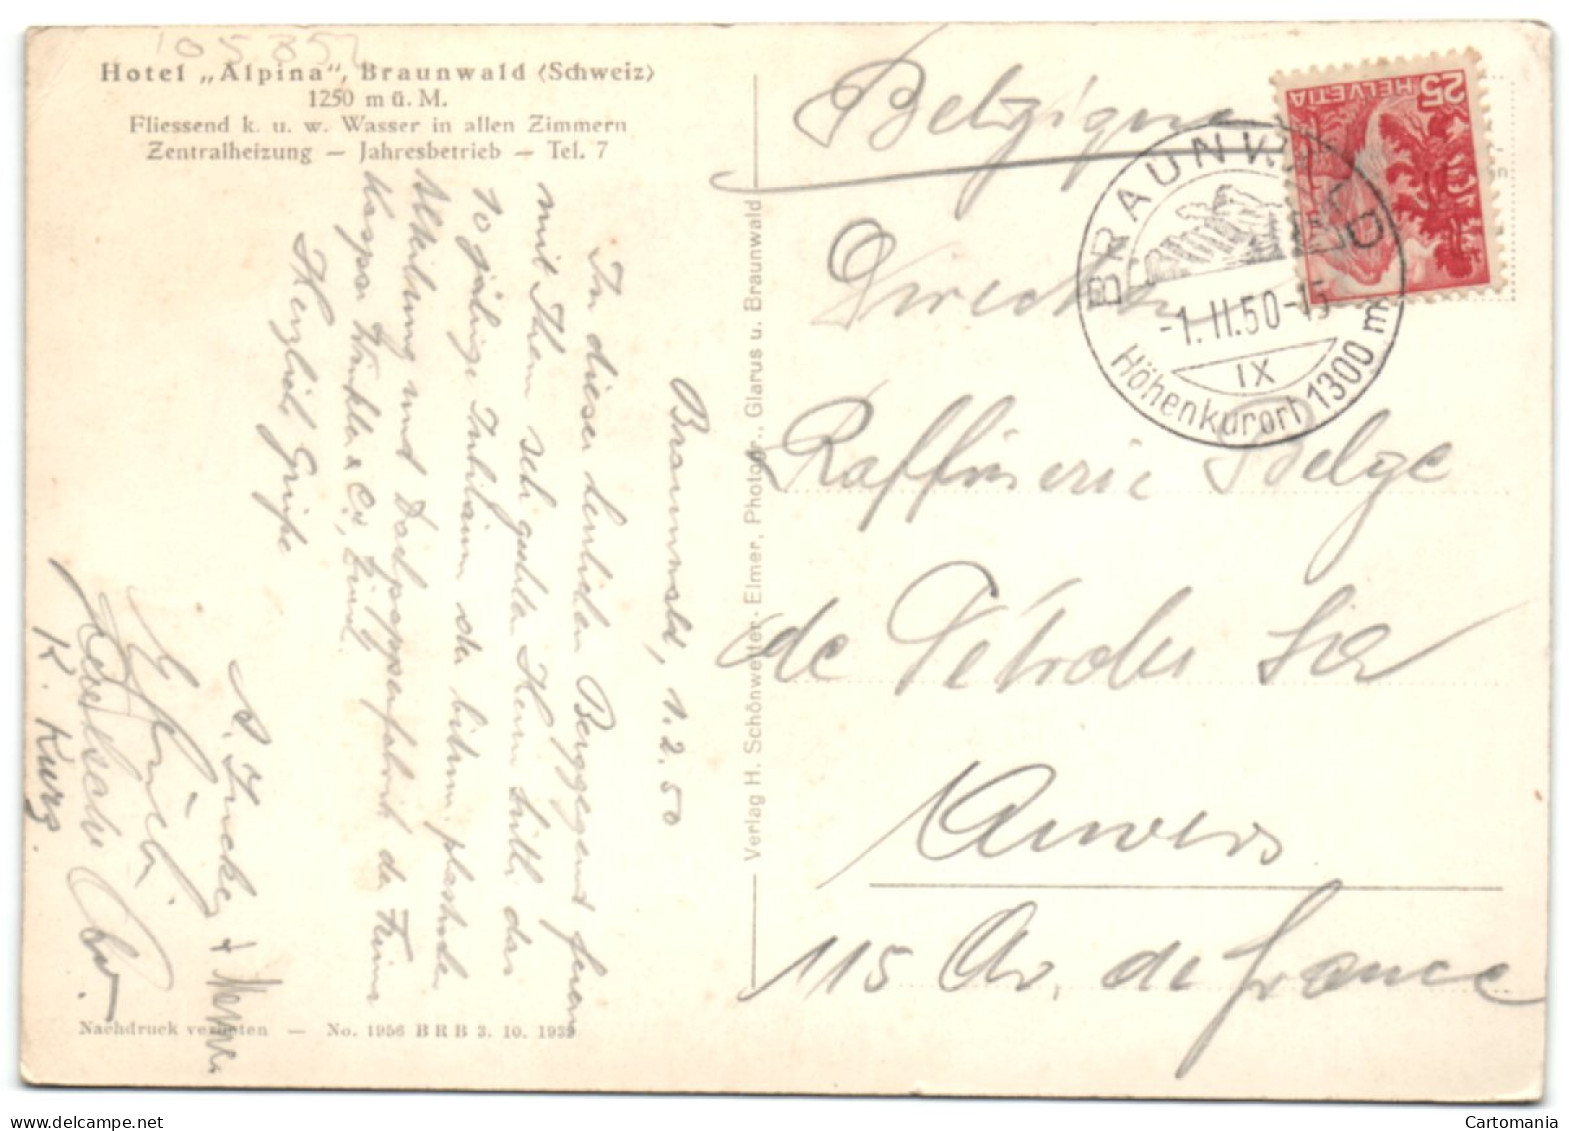 10535
Hotel „Alpina", Braunwald (Schweiz)
1250 m ü. M.
Fliessend k. u. w. Wasser in allen Zimmern
Zentralheizung — Jahresbetrieb — Tel. 7
Braunwald, 1.2.50
In dieser herrlichen Berggegend feiern
mit Ihnen sehr geehrter Herr das
10 jährige Jubiläum der bitum. plastischen
Abteilung und Dachpappenfabrik der Firma
Kaspar Winkler & Co, Zürich
Herzliche Grüsse
K. Kurz
Nachdruck verboten — No. 1956 BRB 3. 10. 1939
Verlag H. Schönwetter-Elmer, Photogr., Glarus u. Braunwald
HELVETIA 25
BRAUNWALD
-1.II.50-15
IX
Höhenkurort 1300 m
Belgique
Direction
Raffinerie Belge
de Pétroles
Anvers
115 Av. de France
www.delcampe.net
Cartomania